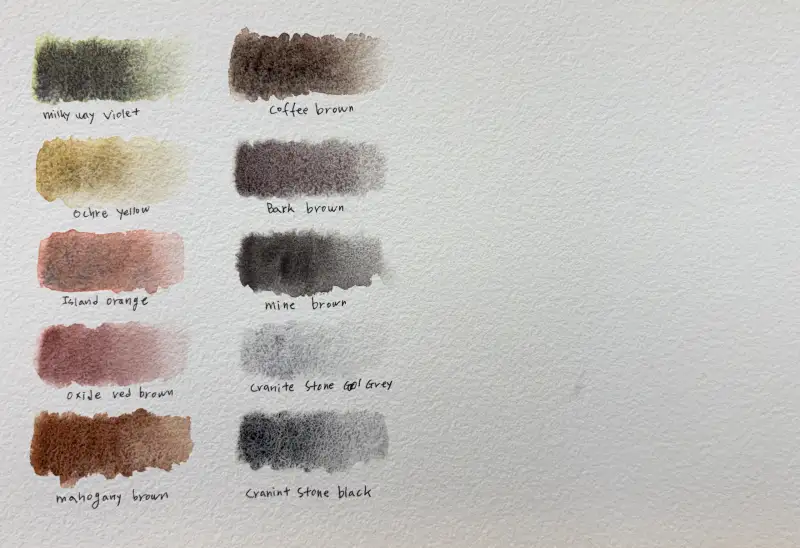 milky way violet
Ochre yellow
Island orange
oxide red brown
mahogany brown
Coffee brown
Bark brown
mine brown
Cranite Stone Grey
Cranint Stone black